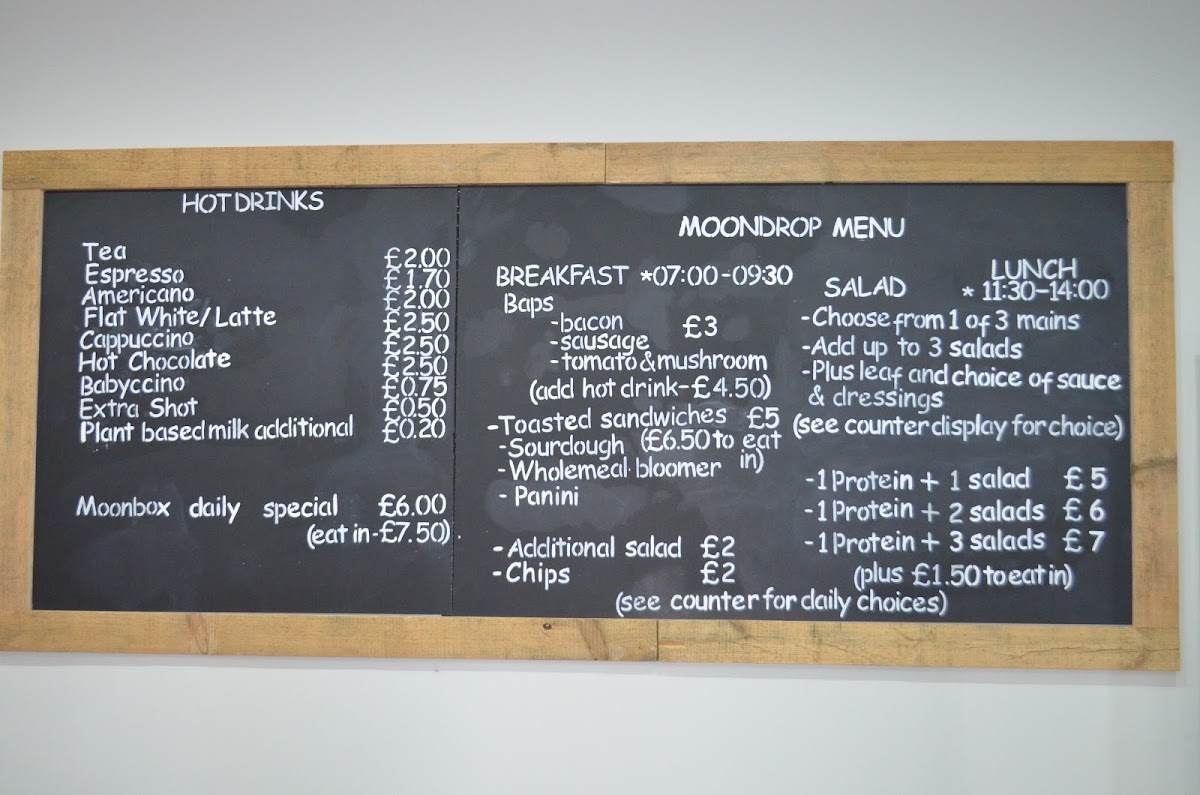 HOT DRINKS
Tea £2.00
Espresso £1.70
Americano £2.00
Flat White/Latte £2.50
Cappuccino £2.50
Hot Chocolate £2.50
Babyccino £0.75
Extra Shot £0.50
Plant based milk additional £0.20
Moonbox daily special £6.00
(eat in-£7.50)
MOONDROP MENU
BREAKFAST *07:00-09:30
Baps
-bacon £3
-sausage
-tomato & mushroom
(add hot drink-£4.50)
-Toasted sandwiches £5
-Sourdough (£6.50 to eat
-Wholemeal bloomer in)
- Panini
-Additional salad £2
-Chips £2
LUNCH
SALAD * 11:30-14:00
-Choose from 1 of 3 mains
-Add up to 3 salads
-Plus leaf and choice of sauce
& dressings
(see counter display for choice)
-1 Protein + 1 salad £5
-1 Protein + 2 salads £6
-1 Protein + 3 salads £7
(plus £1.50 to eat in)
(see counter for daily choices)